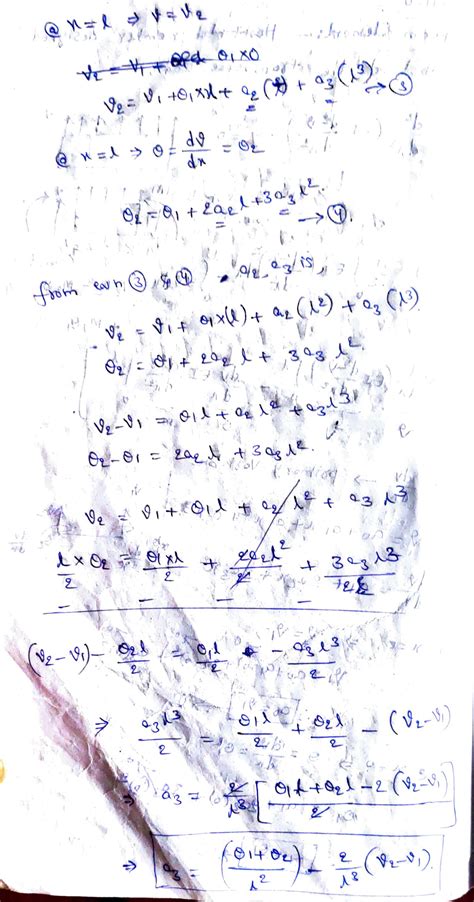 @ x=l ⇒ v=v₂
v₂ = v₁ + θ₁×l + a₂(l²) + a₃(l³) → ③
@ x=l ⇒ θ = dv/dx = θ₂
θ₂ = θ₁ + 2a₂l + 3a₃l² → ④
from eqn ③ & ④, a₂, a₃ is,
v₂ = v₁ + θ₁×(l) + a₂(l²) + a₃(l³)
θ₂ = θ₁ + 2a₂l + 3a₃l²
v₂-v₁ = θ₁l + a₂l² + a₃l³
θ₂-θ₁ = 2a₂l + 3a₃l²
v₂ = v₁ + θ₁l + a₂l² + a₃l³
l/2 × θ₂ = θ₁×l/2 + 2a₂l²/2 + 3a₃l³/2
- - - -
(v₂-v₁) - θ₂l/2 = θ₁l/2 - a₃l³/2
⇒ a₃l³/2 = θ₁l/2 + θ₂l/2 - (v₂-v₁)
⇒ a₃ = 2/l³ [θ₁l + θ₂l - 2(v₂-v₁) / 2]
⇒ a₃ = (θ₁+θ₂/l²) - 2/l³ (v₂-v₁)